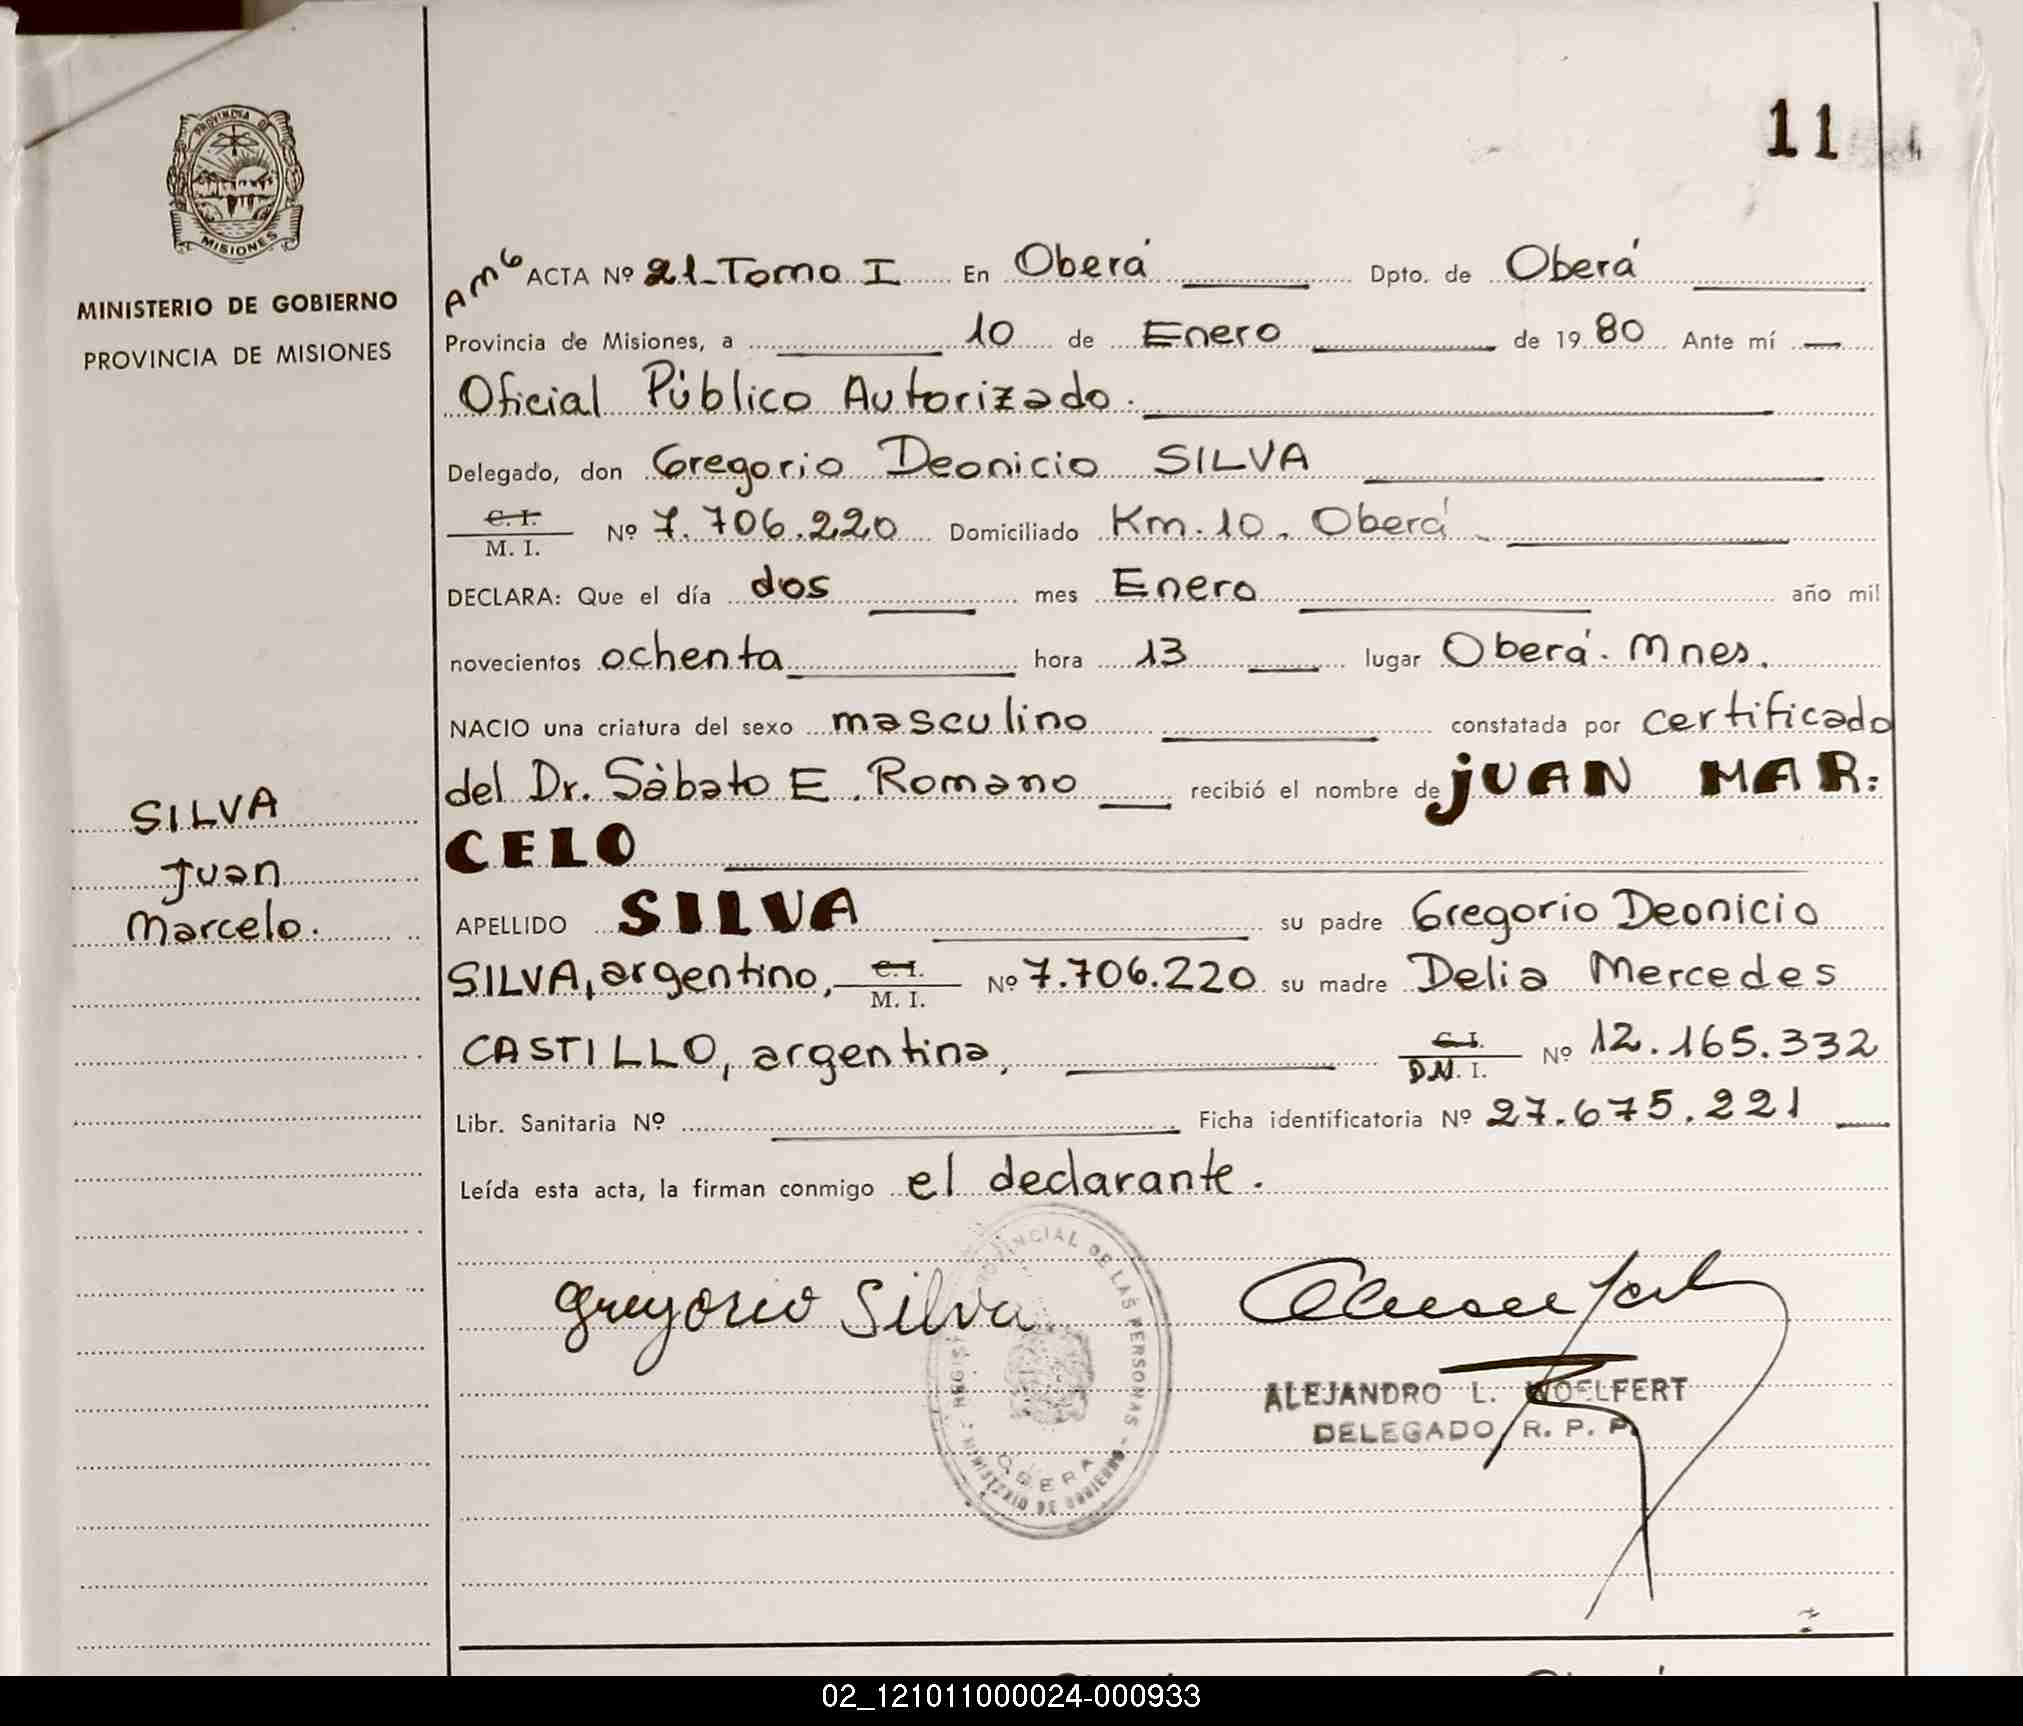 11
PROVINCIA DE
MISIONES
MINISTERIO DE GOBIERNO
PROVINCIA DE MISIONES
ACTA Nº 21-Tomo I En Oberá Dpto. de Oberá
Provincia de Misiones, a 10 de Enero de 1980 Ante mí
Oficial Público Autorizado.
Delegado, don Gregorio Deonicio SILVA
C. I.
M. I. Nº 7.706.220 Domiciliado Km. 10. Oberá
DECLARA: Que el día dos mes Enero año mil
novecientos ochenta hora 13 lugar Oberá. Mnes.
NACIO una criatura del sexo masculino constatada por certificado
del Dr. Sábato E. Romano recibió el nombre de JUAN MAR:
CELO
SILVA
Juan
Marcelo.
APELLIDO SILVA su padre Gregorio Deonicio
SILVA, argentino, C. I.
M. I. Nº 7.706.220 su madre Delia Mercedes
CASTILLO, argentina, C. I.
D.N. I. Nº 12.165.332
Libr. Sanitaria Nº Ficha identificatoria Nº 27.675.221
Leída esta acta, la firman conmigo el declarante.
gregorio Silva
PROVINCIAL DE LAS PERSONAS - MINISTERIO DE GOBIERNO
OBERA
ALEJANDRO L. WOELFERT
DELEGADO R. P. P.
02_121011000024-000933